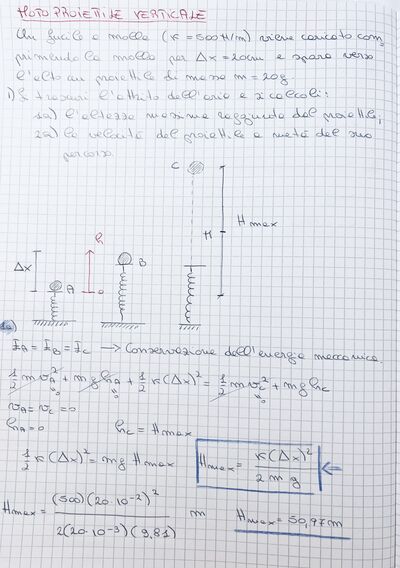 MOTO PROIETTILE VERTICALE
Un fucile a molla (k = 500 N/m) viene caricato com
primendo la molla per Δx = 20cm e spara verso
l'alto un proiettile di massa m = 20g.
1) Si trascuri l'attrito dell'aria e si calcoli:
1a) l'altezza massima raggiunta dal proiettile;
2a) la velocità del proiettile a metà del suo
percorso
C
H max
h
H
B
Δx
A
o
1a)
EA = EB = EC → Conservazione dell'energia meccanica.
1/2 m vA² + m g hA + 1/2 k (Δx)² = 1/2 m vC² + m g hC
"0 "0 "0
vA = vC = 0
hA = 0 hC = Hmax
1/2 k (Δx)² = m g Hmax Hmax = k (Δx)² / 2 m g ⇐
Hmax = (500)(20·10⁻²)² / 2(20·10⁻³)(9,81) m Hmax = 50,97m